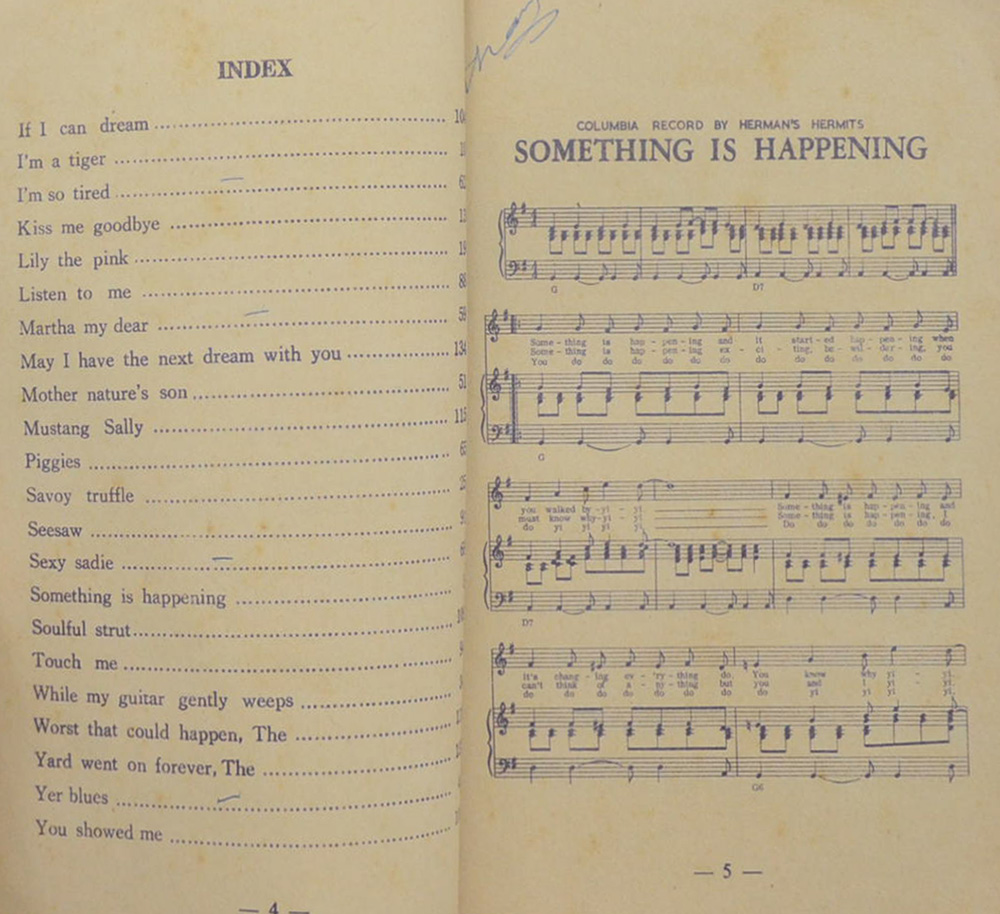 INDEX
If I can dream
I'm a tiger
I'm so tired
Kiss me goodbye
Lily the pink
Listen to me
Martha my dear
May I have the next dream with you 134
Mother nature's son 51
Mustang Sally 115
Piggies
Savoy truffle
Seesaw
Sexy sadie
Something is happening
Soulful strut
Touch me
While my guitar gently weeps
Worst that could happen, The
Yard went on forever, The
Yer blues
You showed me
— 4 —
COLUMBIA RECORD BY HERMAN'S HERMITS
SOMETHING IS HAPPENING
G D7
Some - thing is hap - pen - ing and it start - ed hap - pen - ing when
Some - thing is hap - pen - ing ex - ci - ting, be - wil - der - ing, you
You do do do do do do do do do do do do
G
you walked by - yi - yi Some - thing is hap - pen - ing and
must know why - yi - yi Some - thing is hap - pen - ing, I
do yi yi yi yi Do do do do do do do
D7
it's chang - ing ev - 'ry - thing do. You know why yi - yi.
can't think of a - ny - thing but you and I yi - yi.
do do do do do do do do yi yi yi yi.
G6
— 5 —